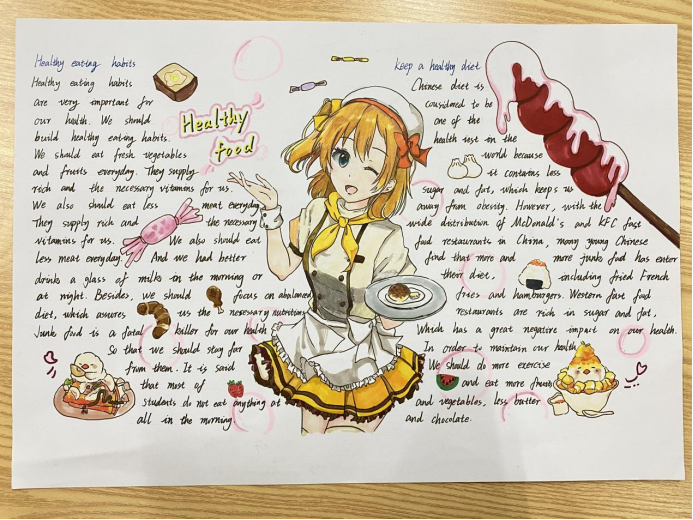 Healthy eating habits
Healthy eating habits
are very important for
our health. We should
build healthy eating habits.
We should eat fresh vegetables
and fruits everyday. They supply
rich and the necessary vitamins for us.
We also should eat less meat everyday
They supply rich and the necessary
vitamins for us. We also should eat
less meat everyday. And we had better
drinks a glass of milks in the morning or
at night. Besides, we should focus on abalanced
diet, which assures us the necessary nutritions
Junk food is a fatal killer for our health
So that we should stay far
from them. It is said
that most of
students do not eat anything at
all in the morning.
Healthy
food
keep a healthy diet
Chinese diet is
considered to be
one of the
health iest in the
world because
it contains less
sugar and fat, which keeps us
away from obesity. However, with the
wide distribution of McDonald's and KFC fast
food restaurants in China, many young Chinese
find that more and more junk food has enter
their diet, including fried French
fries and hamburgers. Western fast food
restaurants are rich in sugar and fat,
Which has a great negative impact on our health.
In order to maintain our health
We should do more exercise
and eat more fruits
and vegetables, less butter
and chocolate.